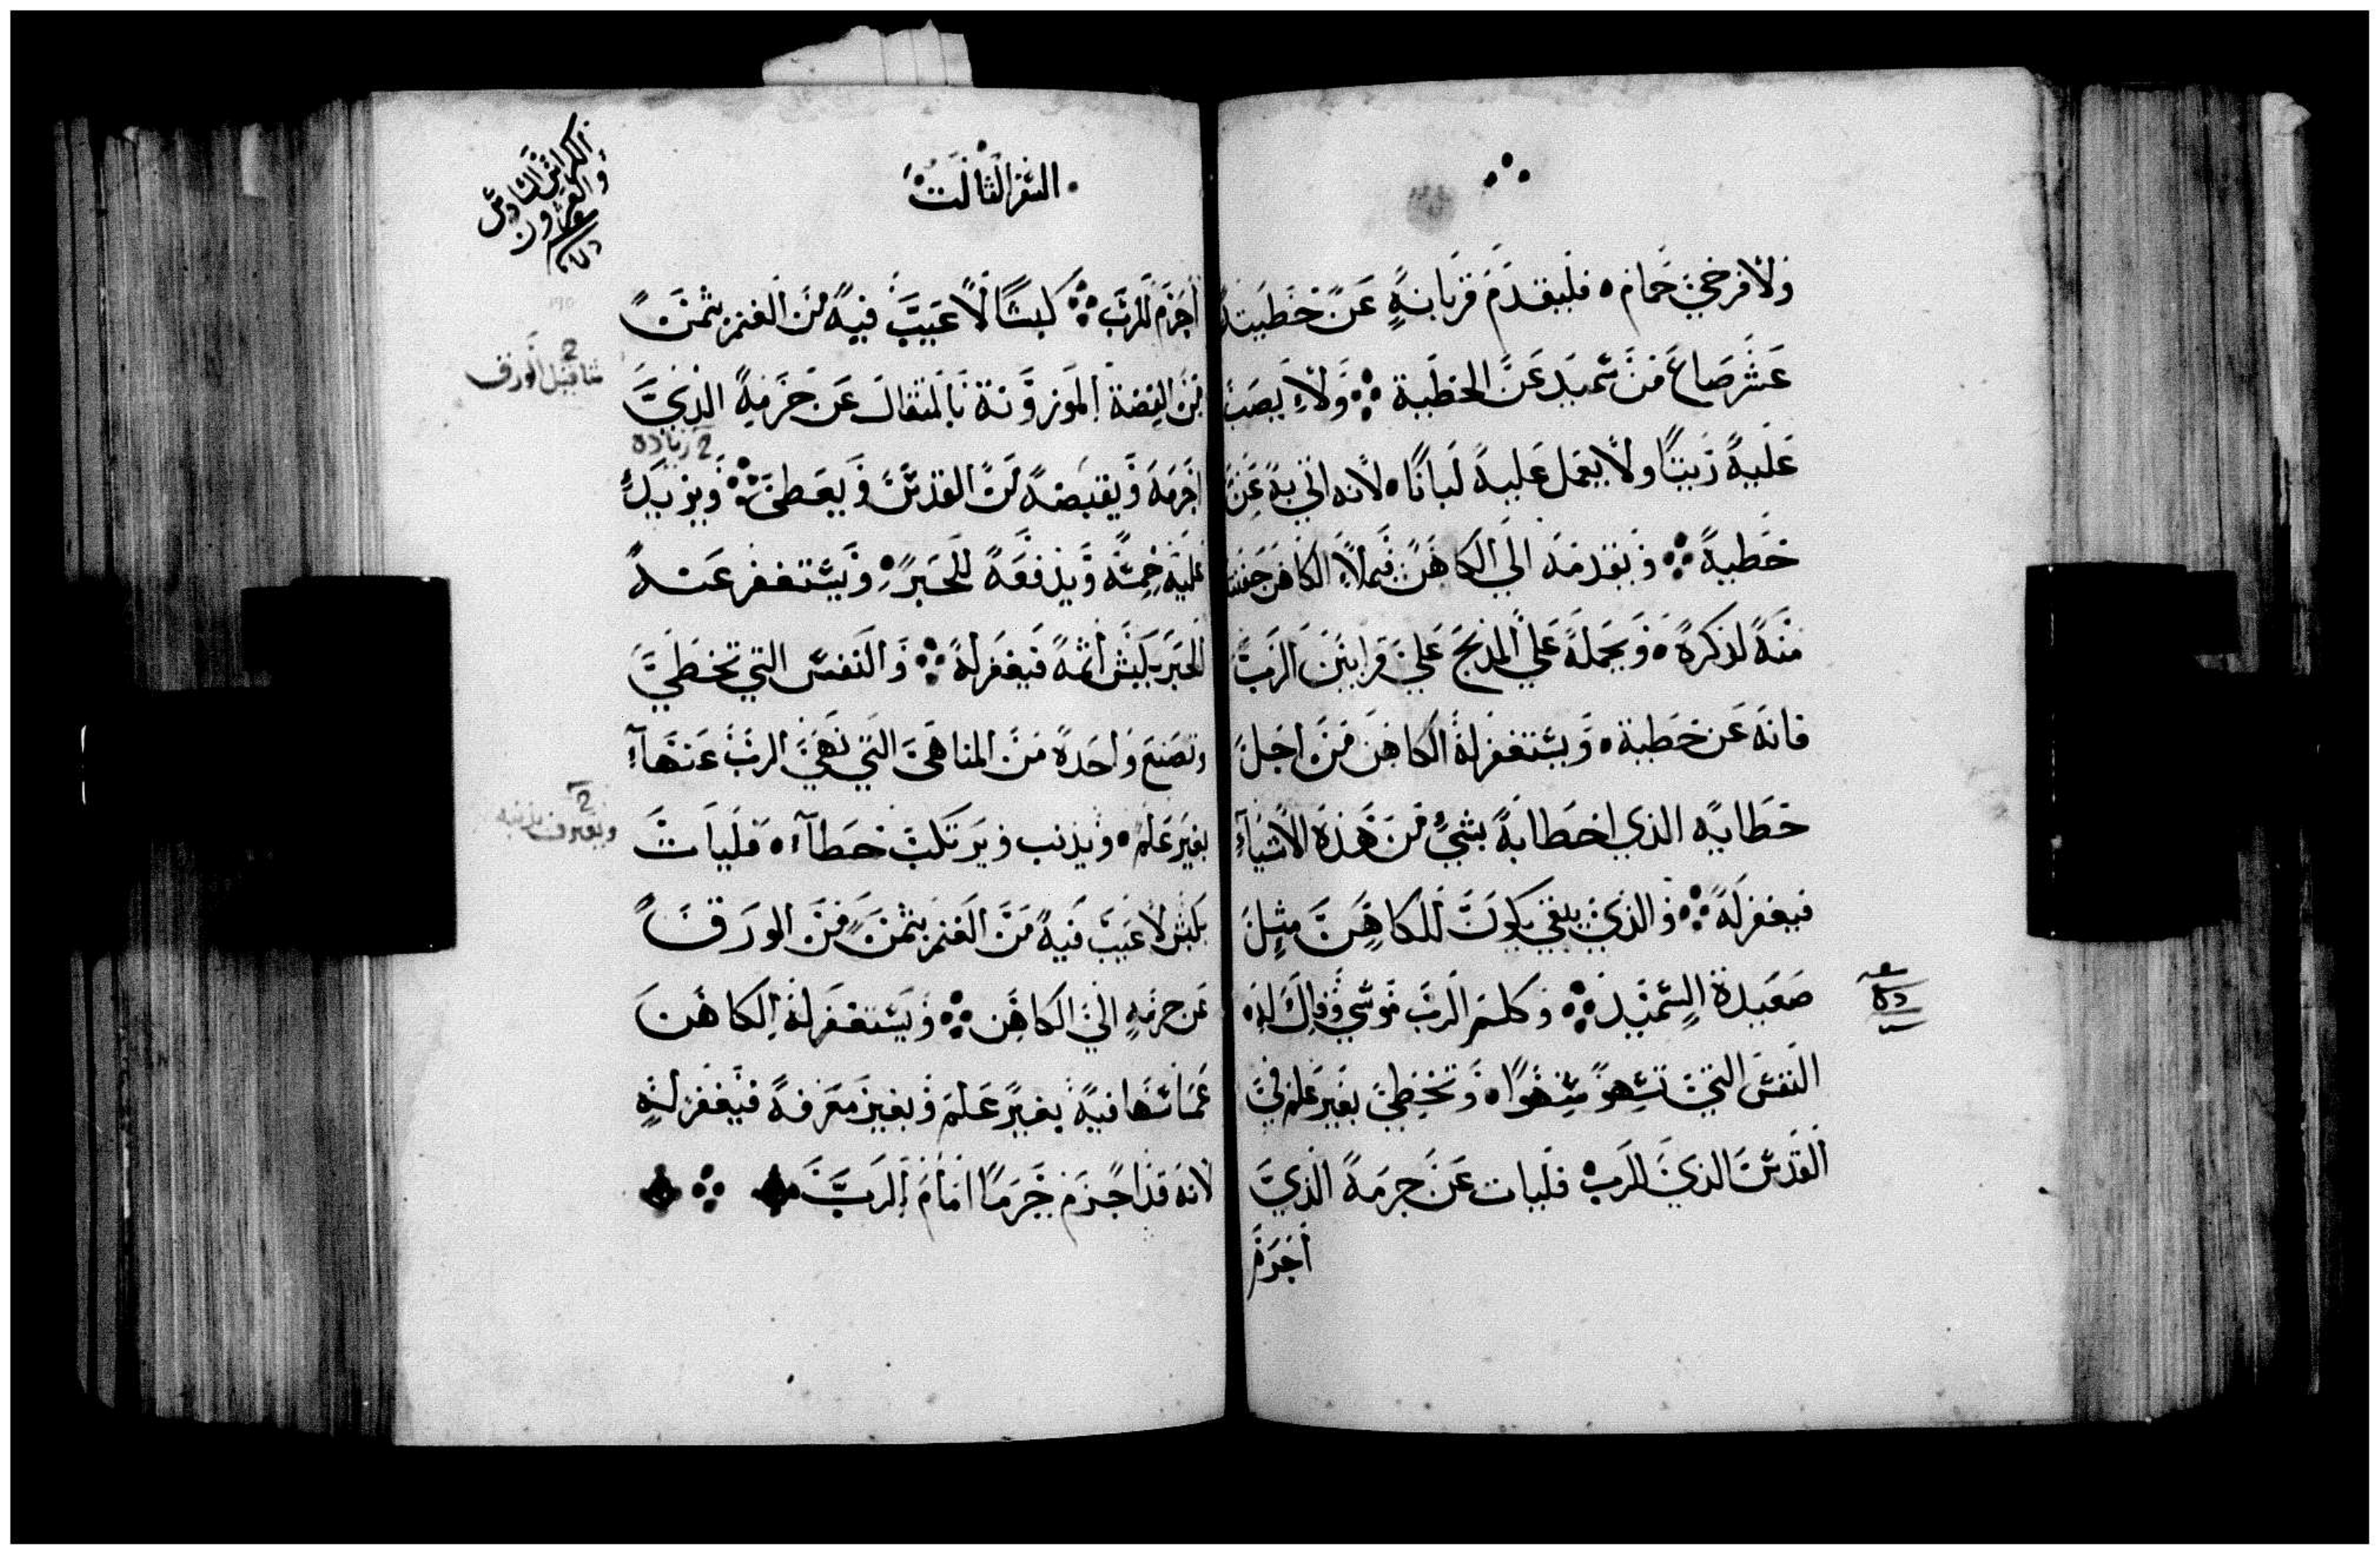 ولا فرخي حمام ٥ فليقدم قربانه عن خطيته
عشر صاع من سميد عن الخطية ولا يصب
عليه زيتا ولا يعمل عليه لبانا ٥ لانه اتي به عن
خطية ويقدمه الي الكاهن فيملا الكاهن حفنته
منه لذكره ٥ ويجمله علي المذبح علي قرابين الرب
فانه عن خطية ٥ ويستغفر له الكاهن من اجل
خطايه الذي اخطا به بشي من هذه الاشياء
فيغفر له والذي يبقي يكون للكاهن مثل
صعيدة السميد وكلم الرب موسي وقال له ٥
النفس التي تسهو سهوا ٥ وتخطي بغير علم في
القدس الذي للرب فليات عن جرمه الذي
اجرم
السفر الثالث
الكراس السادس
والعشرون
اجرم للرب كبشا لا عيب فيه من الغنم بثمن
من الفضة الموزونة بالمثقال عن جرمه الذي
مثاقيل الورق
2 زيادة
اجرمه ويقبضه من القدس ويعطي ويزيد
عليه خمسه ويدفعه للحبر ويستغفر عنه
الحبر بكبش اثمه فيغفر له والنفس التي تخطي
وتصنع واحدة من المناهي التي نهي الرب عنها
بغير علم ٥ ويذنب ويرتكب خطآء ٥ فليات
ويعترف بذنبه
بكبش لا عيب فيه من الغنم بثمن من الورق
عن جرمه الي الكاهن ويستغفر له الكاهن
فيه بغير علم وبغير معرفة فيغفر له
لانه قد اجرم جرما امام الرب